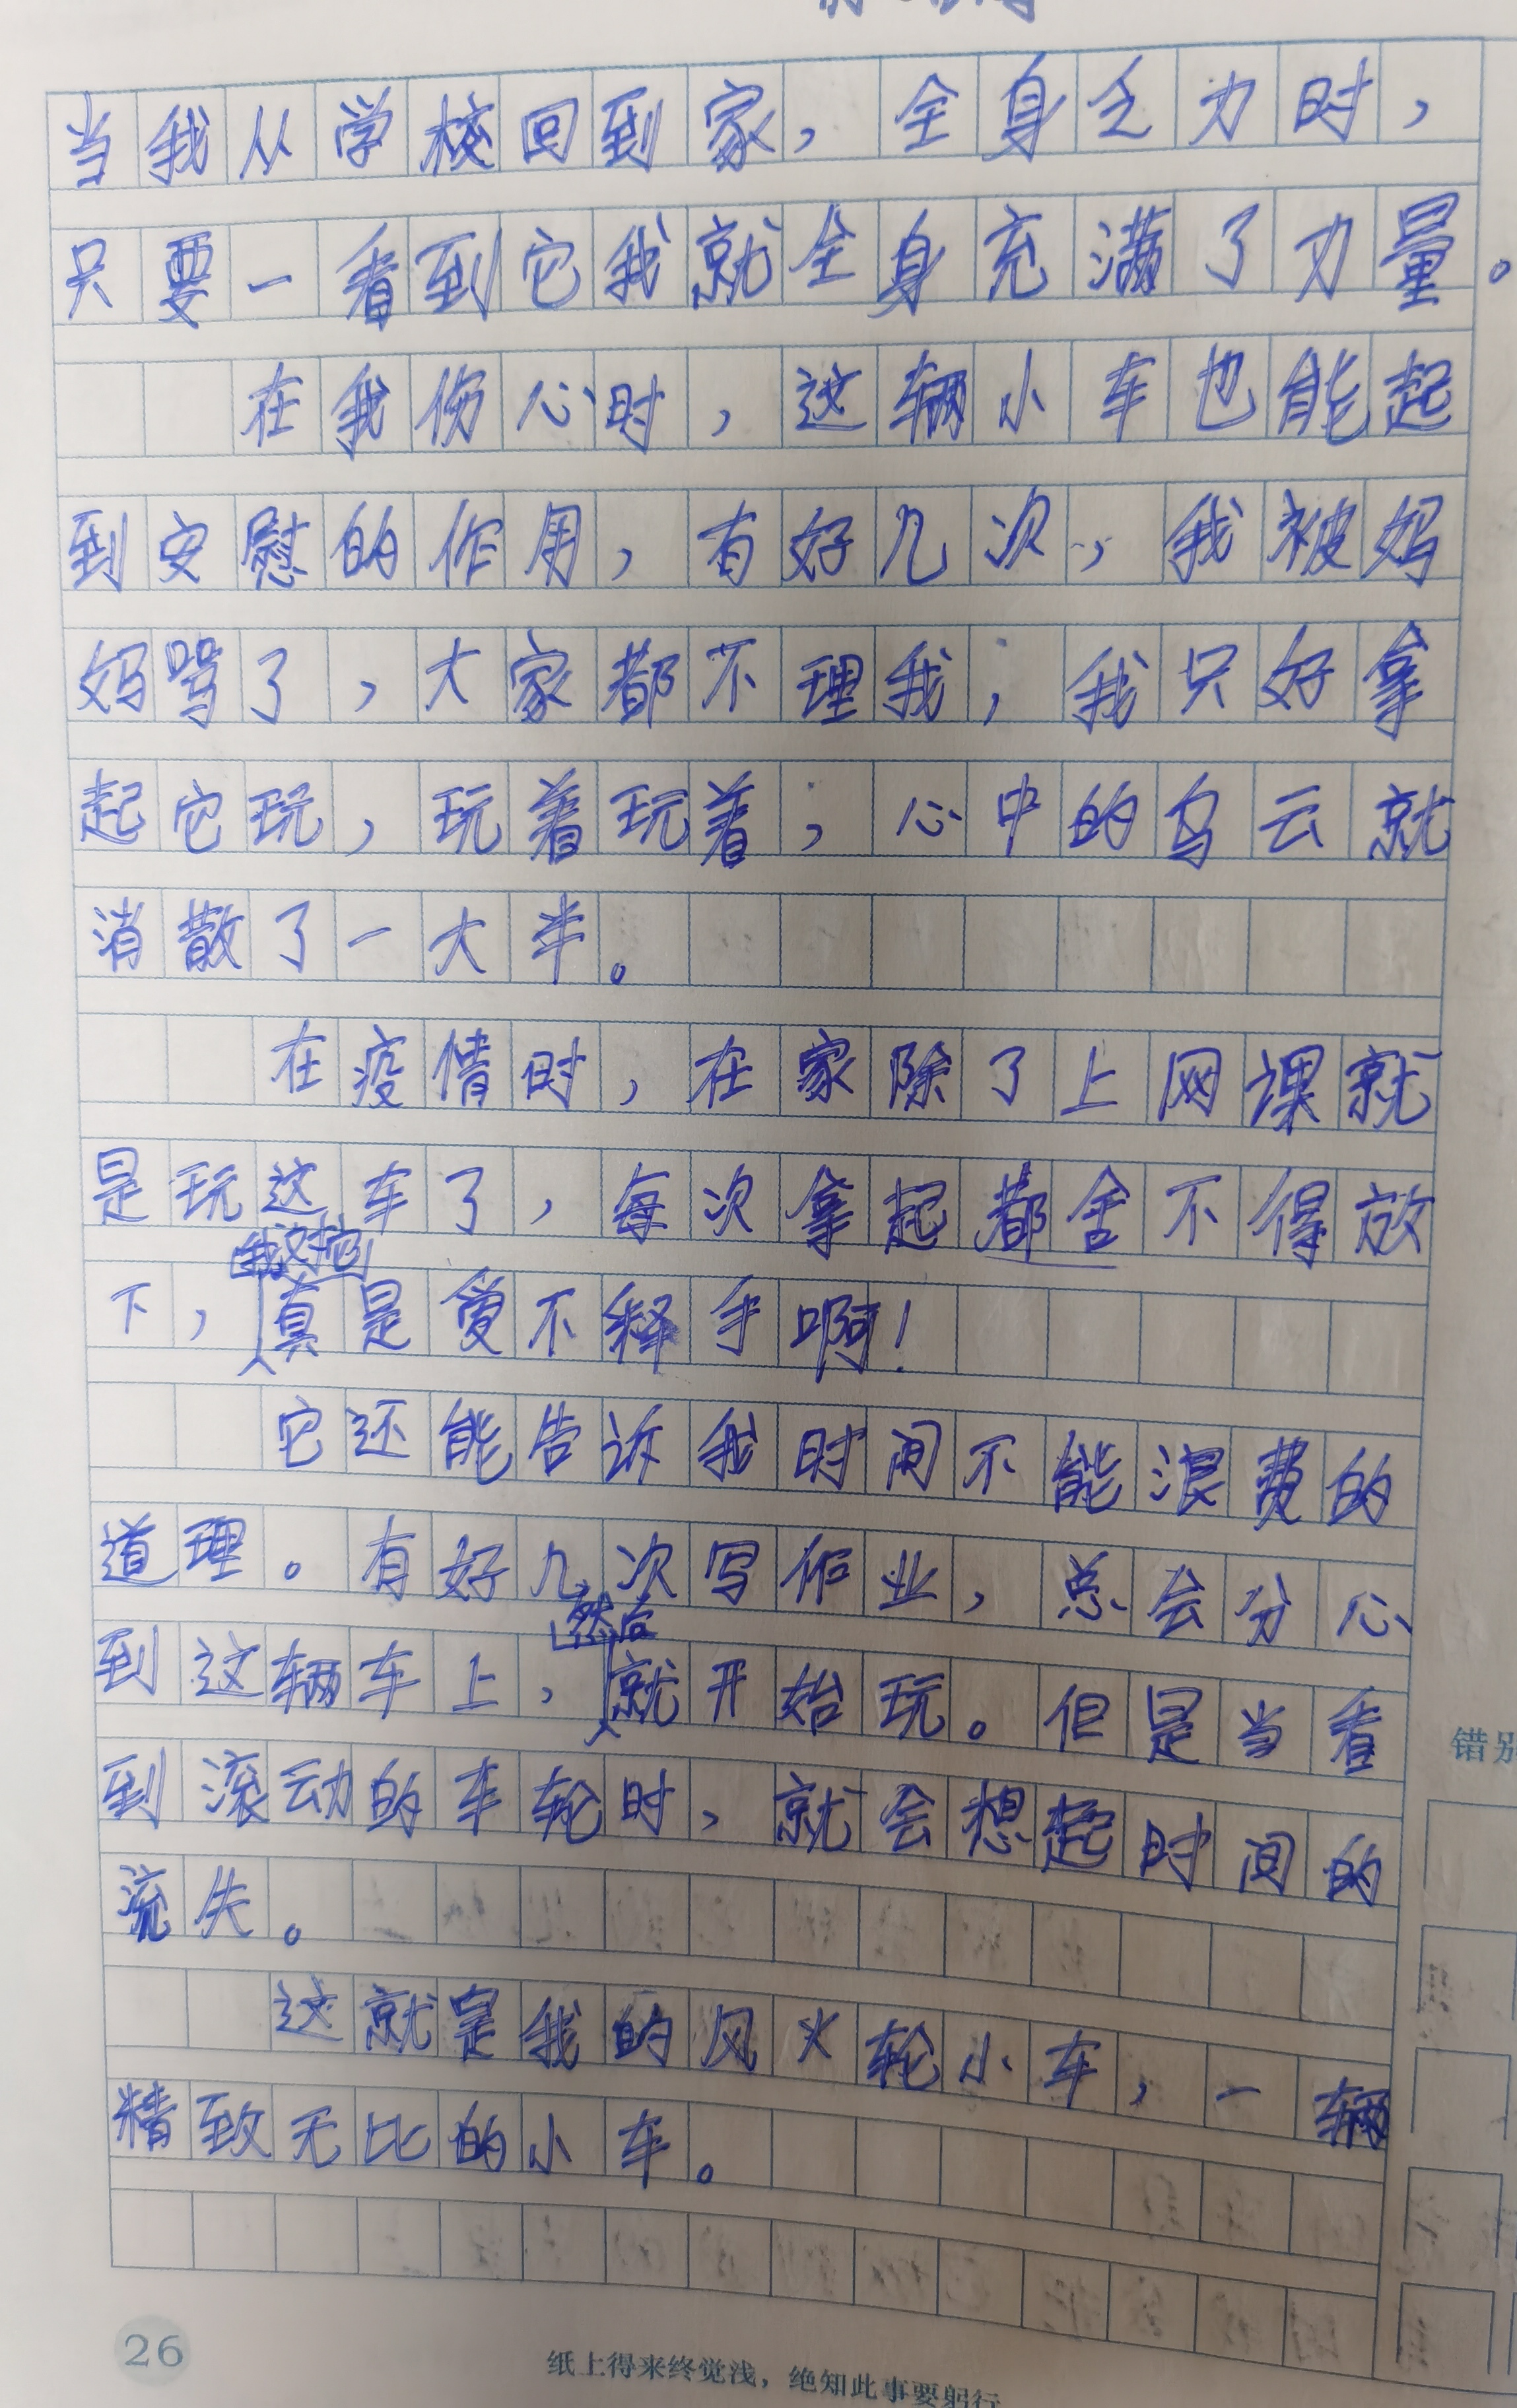 当我从学校回到家，全身乏力时，
只要一看到它我就全身充满了力量。
在我伤心时，这辆小车也能起
到安慰的作用，有好几次，我被妈
妈骂了，大家都不理我，我只好拿
起它玩，玩着玩着，心中的乌云就
消散了一大半。
在疫情时，在家除了上网课就
是玩这车了，每次拿起都舍不得放
我对它
下，真是爱不释手啊！
它还能告诉我时间不能浪费的
道理。有好几次写作业，总会分心
然后
到这辆车上，就开始玩。但是当看
到滚动的车轮时，就会想起时间的
流失。
这就是我的风火轮小车，一辆
精致无比的小车。
错别
26
纸上得来终觉浅，绝知此事要躬行